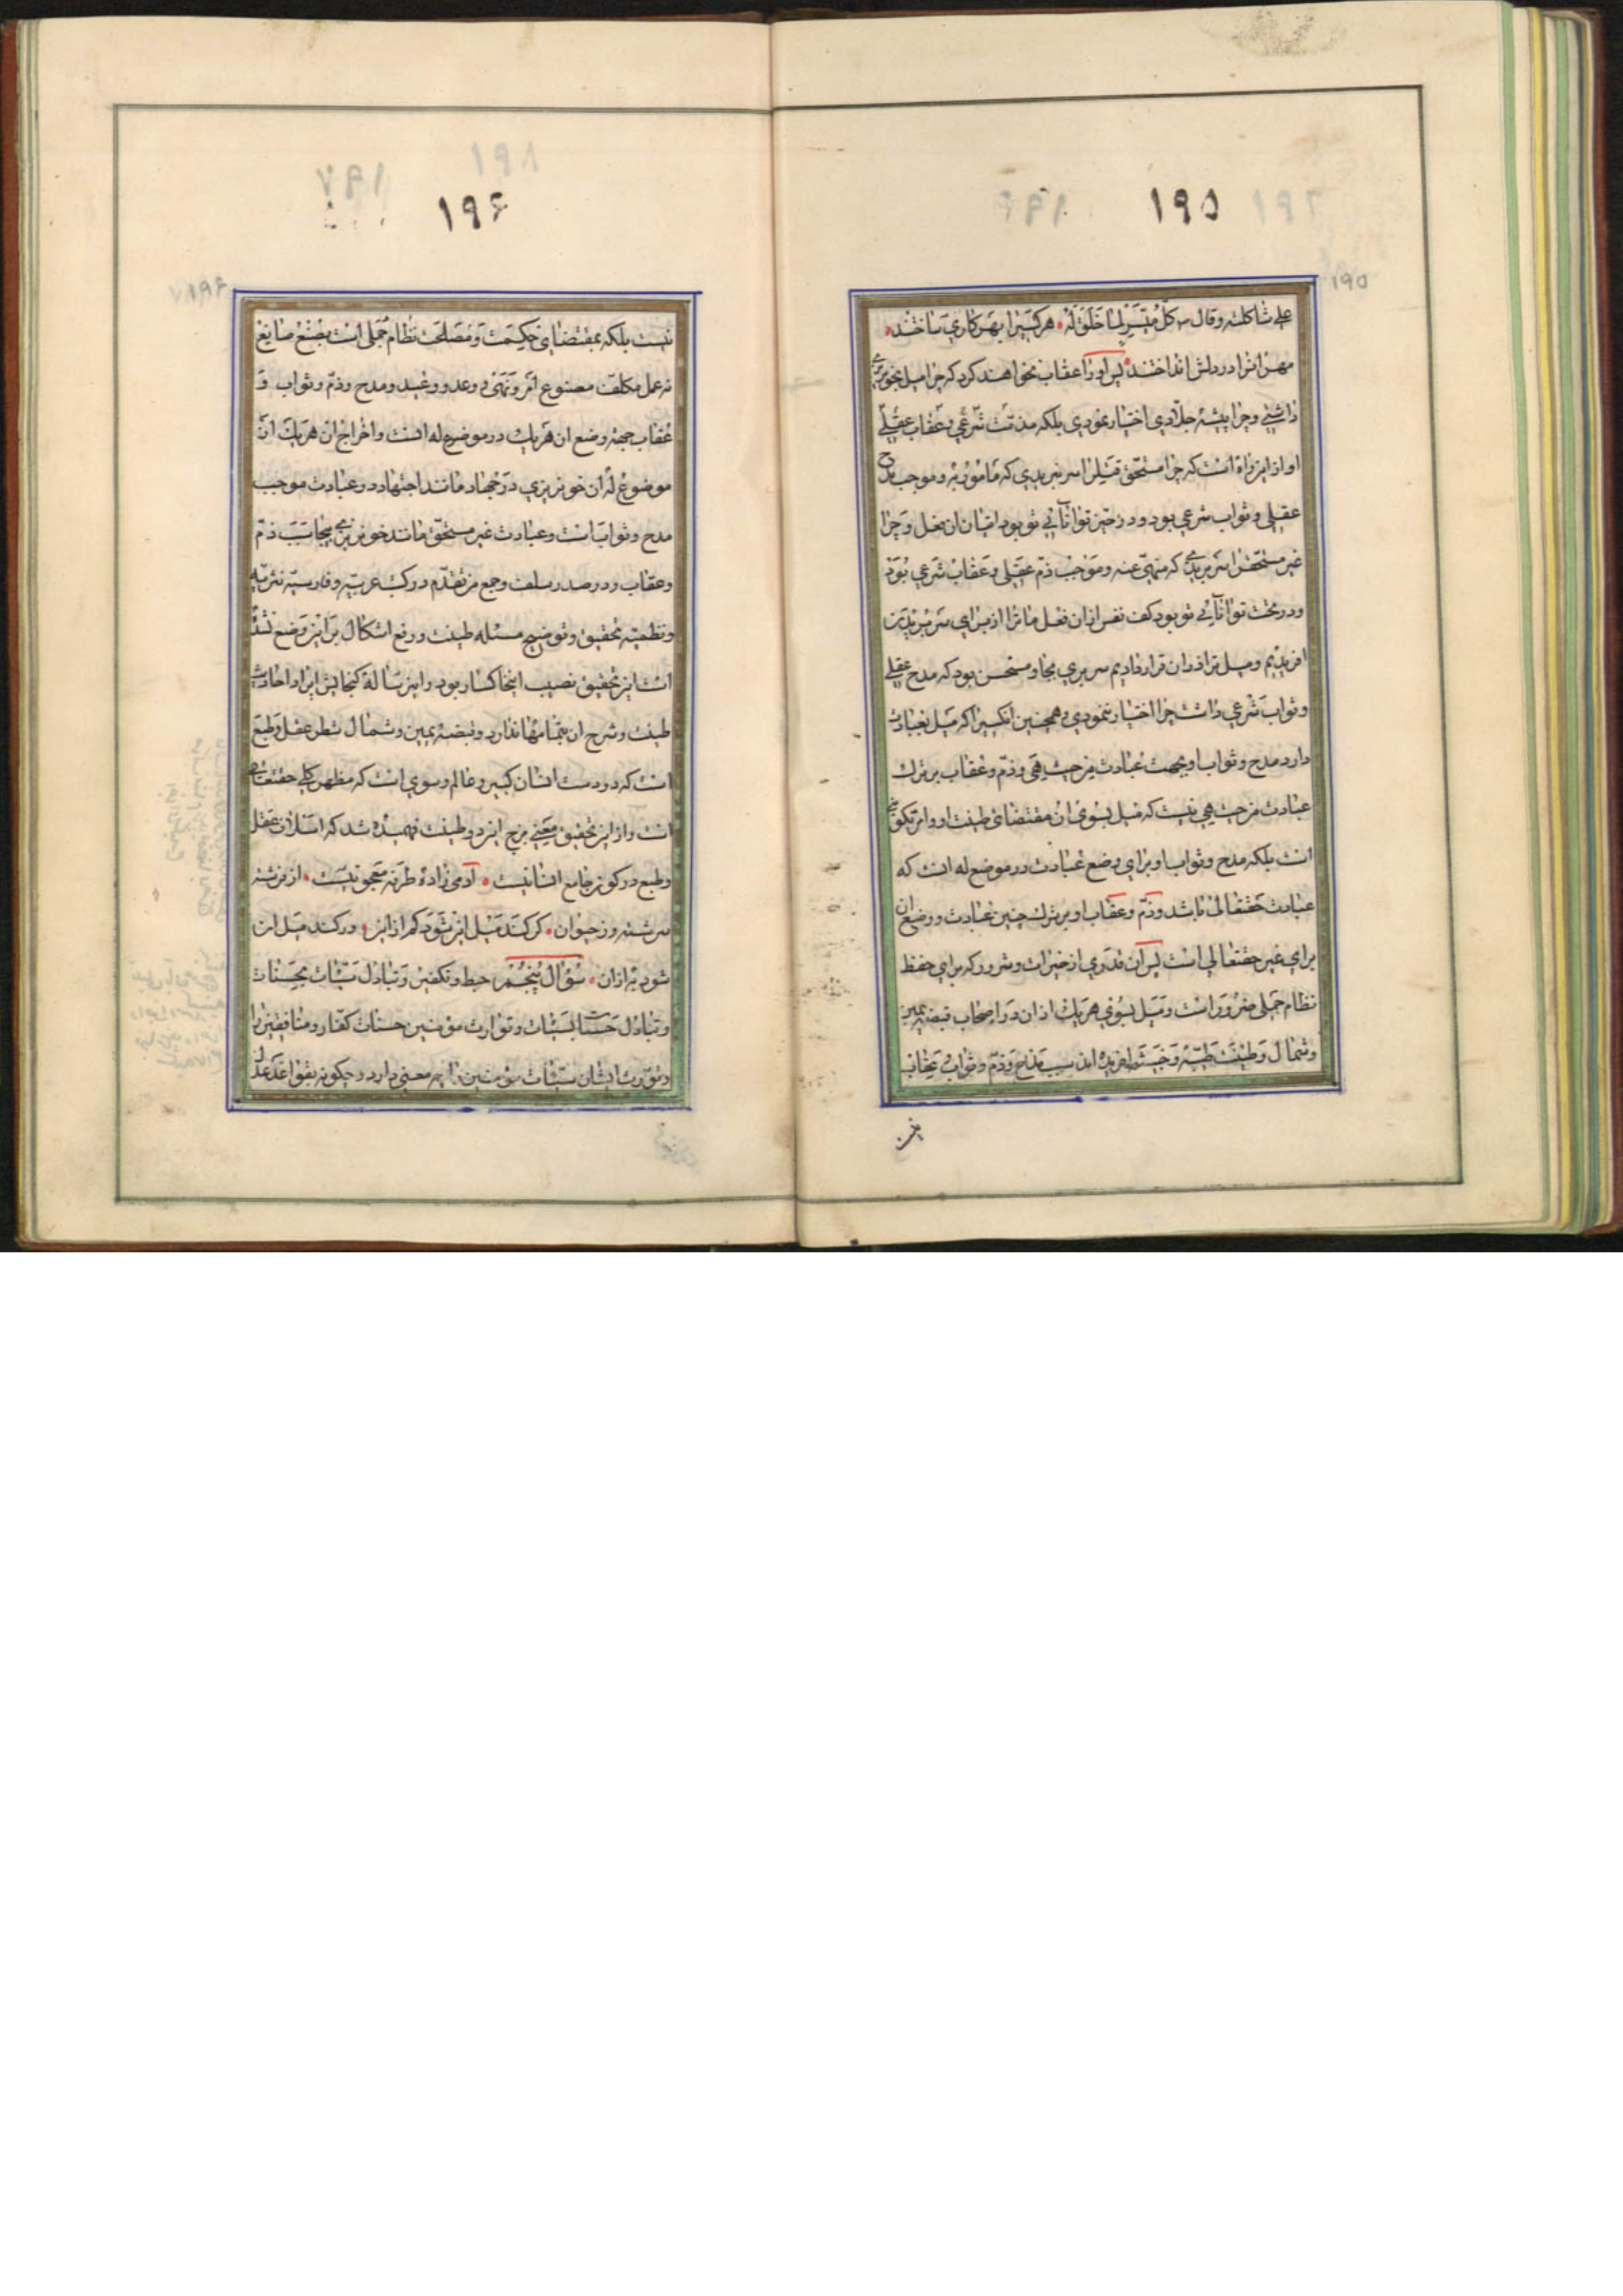 ۱۹۵
۱۹۵
علی شاکلته وقال ص کل میسر لما خلق له هر کسیرا بهر کاری ساختند
مهر انرا در دلش انداختند پس او را عقاب نخواهند کرد که چرا میل بخونریزی
داشتی وچرا پیشهٔ جلادی اختیار نمودی بلکه مذمت شرعی وعقاب عقلی
او از این راه است که چرا مستحق قتلرا سر نبریدی که مأمور به وموجب مدح
عقلی وثواب شرعی بود ودر حیز توانائی تو بود اتیان ان بفعل وچرا
غیر مستحقرا سر بریدی که منهی عنه وموجب ذم عقلی وعقاب شرعی بود
ودر تحت توانائی تو بود کف نفس از ان فعل ما ترا از برای سر بریدن
افریدیم ومیل ترا در ان قرار دادیم سر بری بجا ومستحسن بود که مدح عقلی
وثواب شرعی داشت چرا اختیار ننمودی وهمچنین انکسیرا که میل بعبادت
دارد مدح وثواب او بجهت عبادت من حیث هی وذم وعقاب بر ترک
عبادت من حیث هی نیست که میل بسوی ان مقتضای طینت او وامر تکوینی
است بلکه مدح وثواب او برای وضع عبادت در موضع له است که
عبادت حقتعالی باشد وذم وعقاب او بر ترک چنین عبادت ووضع ان
برای غیر حقتعالی است پس آن قدری از خیرات وشرور که برای حفظ
نظام جملی ضرور است ومیل بسوی هریک از ان در اصحاب قبضه یمین
وشمال وطینت طیبه وخبیثه افریده اند سبب مدح وذم وثواب وعقاب
۱۹۶
نیست بلکه بمقتضای حکمت ومصلحت نظام جملی است بصنع صانع
نه عمل مکلف مصنوع امر ونهی ووعد ووعید ومدح وذم وثواب و
عقاب جهة وضع ان هریک در موضوع له است واخراج ان هریک از
موضوع له ان خونریزی در جهاد مانند اجتهاد در عبادت موجب
مدح وثواب است وعبادت غیر مستحق مانند خونریزی بیجا سبب ذم
وعقاب ودر صدر سلف وجمع من تقدم در کتب عربیه وفارسیه نثریه
ونظمیه تحقیق وتوضیح مسئله طینت ورفع اشکال بر این وضع نشده
است این تحقیق نصیب اینخاکسار بود واین رساله کنجایش ایراد احادیث
طینت وشرح ان بتمامها ندارد وقبضه یمین وشمال شطر عقل وطبع
است که دو دست انسان کبیر وعالم وسوی است که مظهر کلی حقتعالی
است واز این تحقیق معنی مزج این دو طینت فهمیده شد که عقل
وطبع در کون جامع انسانیست آدمی زاده طرفه معجونیست از فرشته
سرشته وز حیوان کر کند میل این شود کم از این ور کند میل ان
شود به از ان سؤال پنجم حبط وتکفیر وتبادل سیئات بحسنات
وتبادل حسنات بسیئات وتوارث مؤمنین حسنات کفار ومنافقین را
وتوارث ایشان سیئات مؤمنین را چه معنی دارد وچکونه بقواعد عدل